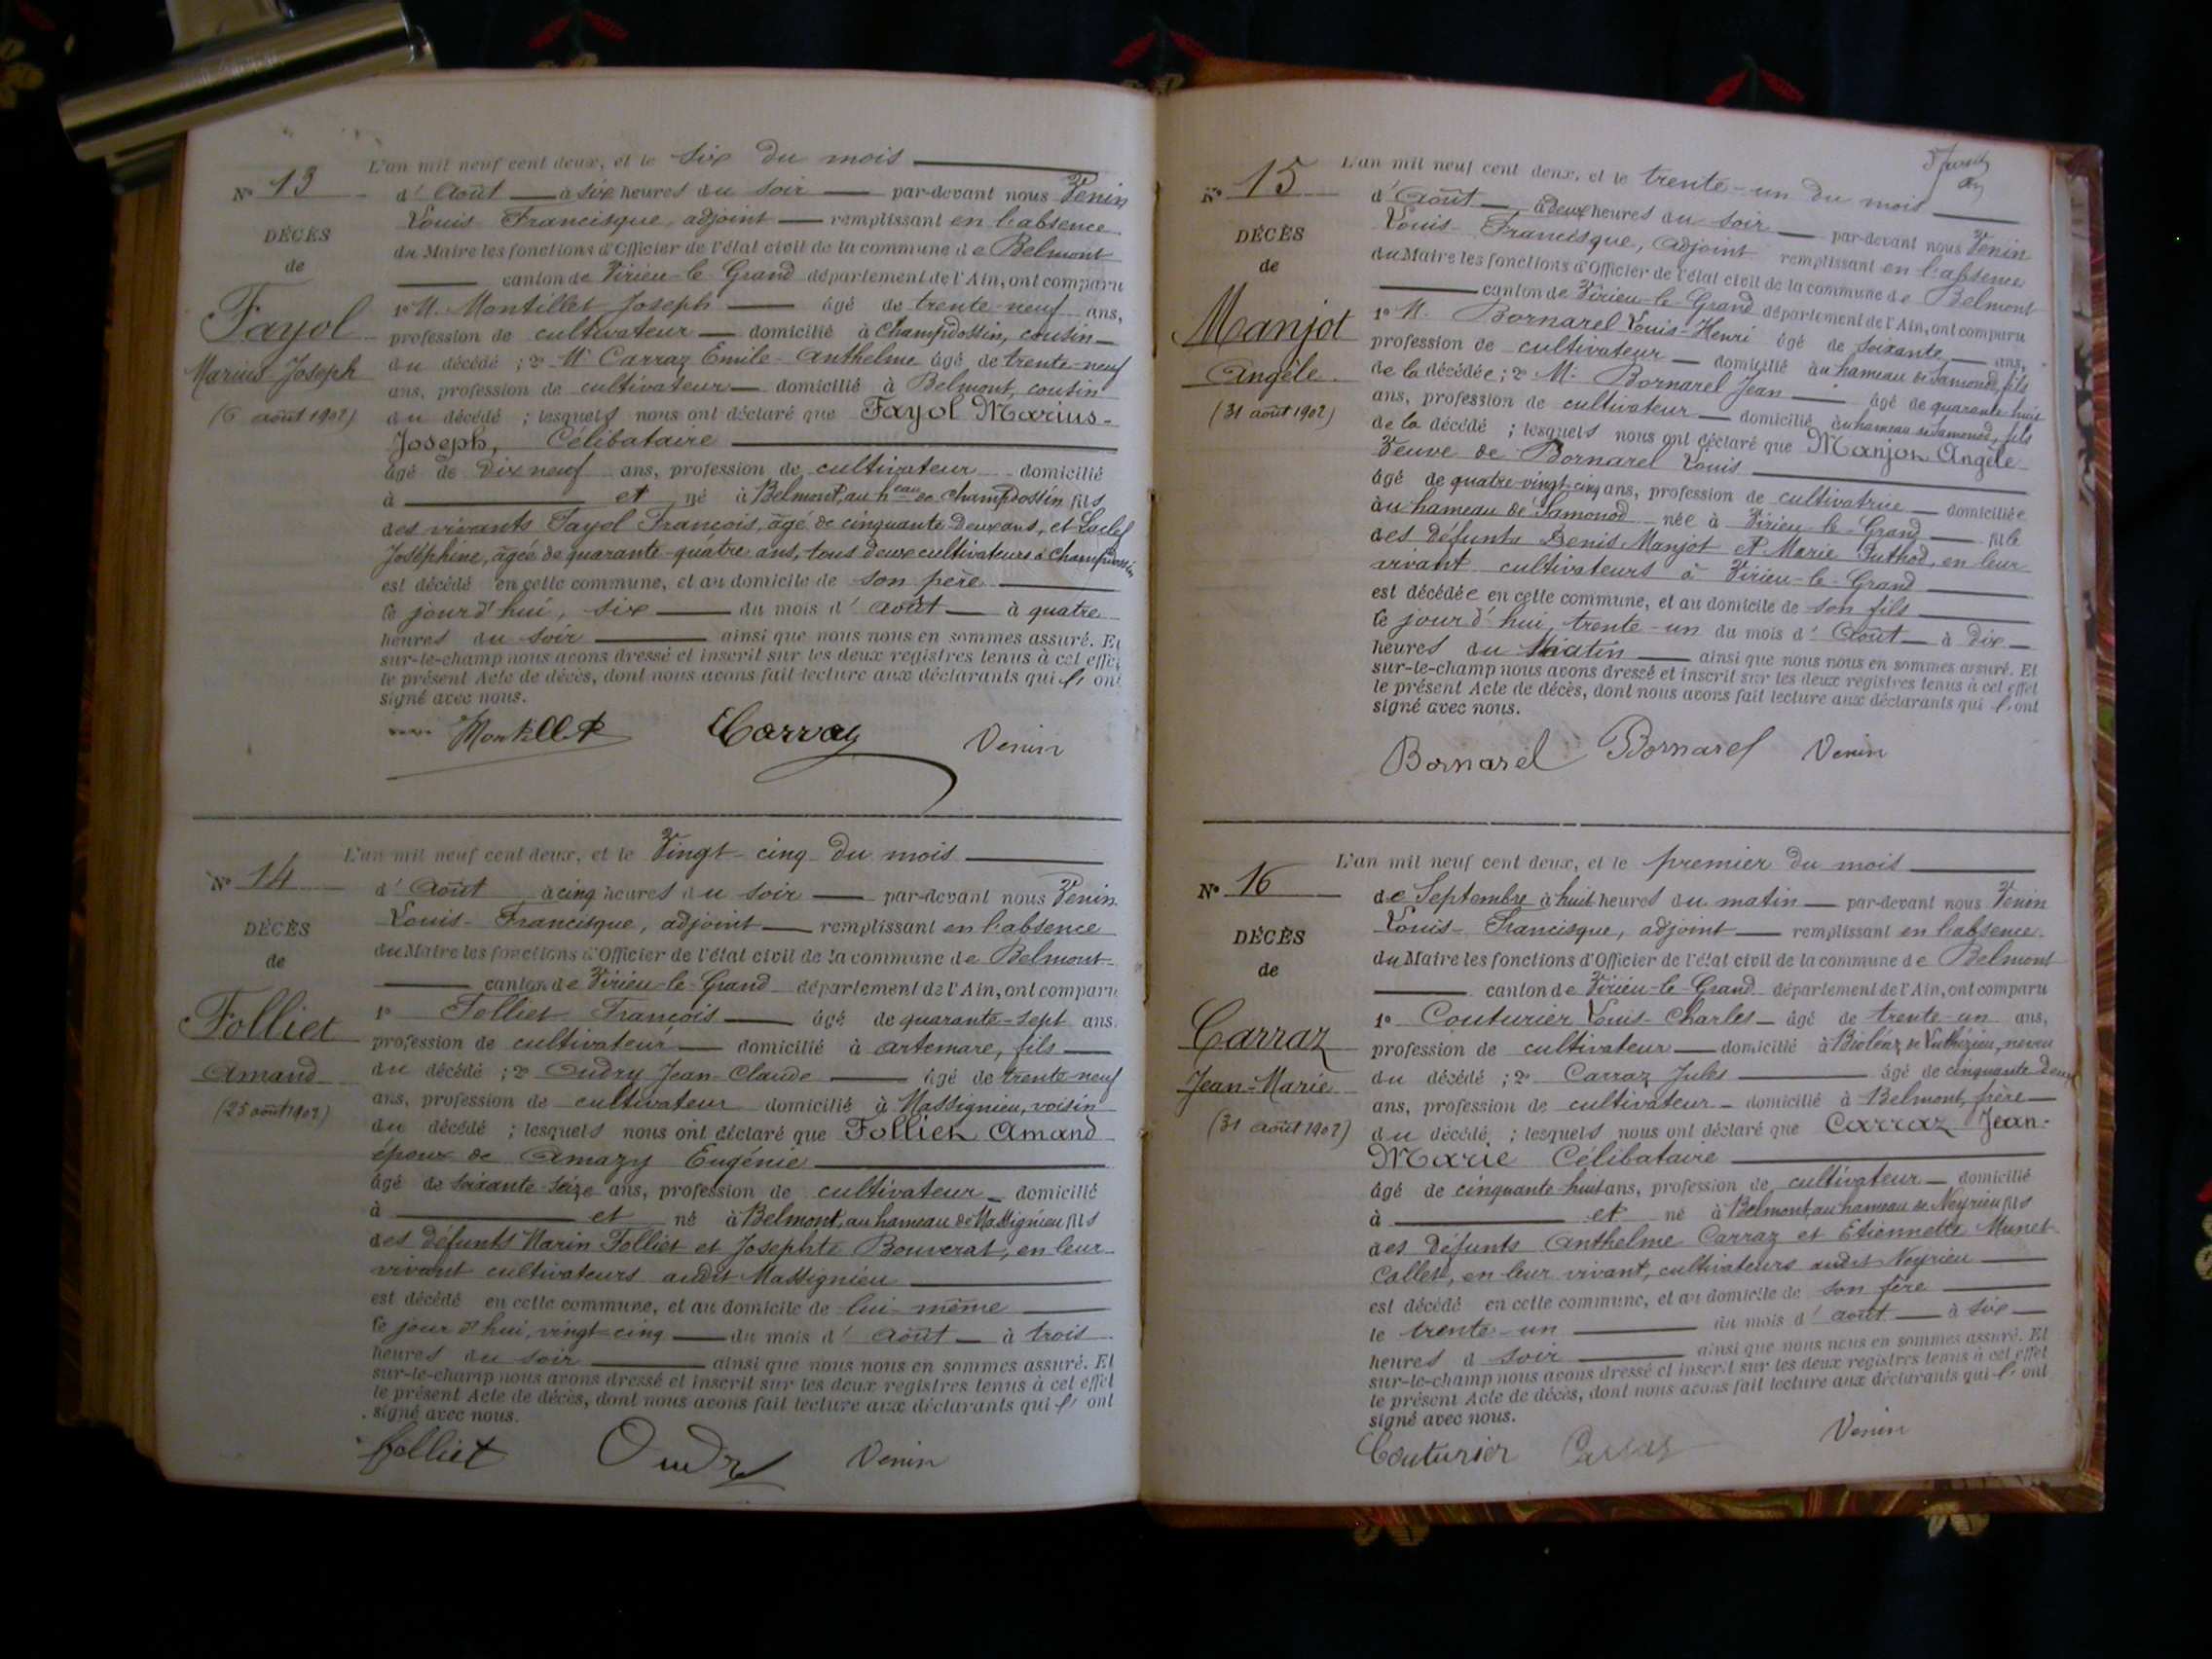 L'an mil neuf cent deux, et le six du mois
N° 13
d'Août à six heures du soir par-devant nous Venin
Louis Francisque, adjoint remplissant en l'absence
DÉCÈS
du Maire les fonctions d'Officier de l'état civil de la commune de Belmont
de
canton de Virieu-le-Grand département de l'Ain, ont comparu
Fayol
1° M. Montillet Joseph âgé de trente-neuf ans,
profession de cultivateur domicilié à Champdossin, cousin
Marius-Joseph
du décédé ; 2° Mr Carraz Emile-Anthelme âgé de trente-neuf
ans, profession de cultivateur domicilié à Belmont, cousin
(6 août 1902)
du décédé ; lesquels nous ont déclaré que Fayol Marius-
Joseph, Célibataire
âgé de Dix neuf ans, profession de cultivateur domicilié
à et né à Belmont, au heau de Champdossin fils
des vivants Fayol François, âgé de cinquante-deux ans, et Laclef
Joséphine, âgée de quarante-quatre ans, tous deux cultivateurs à Champdossin
est décédé en cette commune, et au domicile de son père
le jourd'hui, six du mois d'août à quatre
heures du soir ainsi que nous nous en sommes assuré. Et
sur-le-champ nous avons dressé et inscrit sur les deux registres tenus à cet effet
le présent Acte de décès, dont nous avons fait lecture aux déclarants qui l'ont
signé avec nous.
Montillet Carraz Venin
L'an mil neuf cent deux, et le Vingt-cinq du mois
N° 14
d'Août à cinq heures du soir par-devant nous Venin
Louis-Francisque, adjoint remplissant en l'absence
DÉCÈS
du Maire les fonctions d'Officier de l'état civil de la commune de Belmont
de
canton de Virieu-le-Grand département de l'Ain, ont comparu
Folliet
1° Folliet François âgé de quarante-sept ans,
profession de cultivateur domicilié à Artemare, fils
Amand
du décédé ; 2° Oudry Jean-Claude âgé de trente-neuf
(25 août 1902)
ans, profession de cultivateur domicilié à Massignieu, voisin
du décédé ; lesquels nous ont déclaré que Folliet Amand
époux de Amazy Eugénie
âgé de soixante-seize ans, profession de cultivateur domicilié
à et né à Belmont, au hameau de Massignieu fils
des défunts Marin Folliet et Josephte Bouverat, en leur
vivant cultivateurs audit Massignieu
est décédé en cette commune, et au domicile de lui-même
le jourd'hui, vingt-cinq du mois d'Août à trois
heures du soir ainsi que nous nous en sommes assuré. Et
sur-le-champ nous avons dressé et inscrit sur les deux registres tenus à cet effet
le présent Acte de décès, dont nous avons fait lecture aux déclarants qui l'ont
signé avec nous.
folliet Oudry Venin
L'an mil neuf cent deux, et le trente-un du mois
N° 15
d'Août à deux heures du soir par-devant nous Venin
Louis-Francisque, adjoint remplissant en l'absence
DÉCÈS
du Maire les fonctions d'Officier de l'état civil de la commune de Belmont
de
canton de Virieu-le-Grand département de l'Ain, ont comparu
Manjot
1° M. Bornarel Louis-Henri âgé de soixante ans,
profession de cultivateur domicilié au hameau de Samonod, fils
Angèle
de la décédée ; 2° M. Bornarel Jean âgé de quarante-huit
(31 août 1902)
ans, profession de cultivateur domicilié au hameau de Samonod, fils
de la décédé ; lesquels nous ont déclaré que Manjot Angèle
Veuve de Bornarel Louis
âgé de quatre-vingt-cinq ans, profession de cultivatrice domiciliée
au hameau de Samonod née à Virieu-le-Grand fille
des défunts Denis Manjot et Marie Puthod, en leur
vivant cultivateurs à Virieu-le-Grand
est décédée en cette commune, et au domicile de son fils
le jourd'hui, trente-un du mois d'Août à dix
heures du Matin ainsi que nous nous en sommes assuré. Et
sur-le-champ nous avons dressé et inscrit sur les deux registres tenus à cet effet
le présent Acte de décès, dont nous avons fait lecture aux déclarants qui l'ont
signé avec nous.
Bornarel Bornarel Venin
L'an mil neuf cent deux, et le premier du mois
N° 16
de Septembre à huit heures du matin par-devant nous Venin
Louis-Francisque, adjoint remplissant en l'absence
DÉCÈS
du Maire les fonctions d'Officier de l'état civil de la commune de Belmont
de
canton de Virieu-le-Grand département de l'Ain, ont comparu
Carraz
1° Couturier Louis-Charles âgé de trente-un ans,
profession de cultivateur domicilié à Bioléaz de Luthézieu, neveu
Jean-Marie
du décédé ; 2° Carraz Jules âgé de cinquante-deux
(31 août 1902)
ans, profession de cultivateur domicilié à Belmont, frère
du décédé ; lesquels nous ont déclaré que Carraz Jean-
Marie Célibataire
âgé de cinquante-huit ans, profession de cultivateur domicilié
à et né à Belmont, au hameau de Neyrieu fils
des défunts Anthelme Carraz et Etiennette Munet
Collet, en leur vivant, cultivateurs audit Neyrieu
est décédé en cette commune, et au domicile de son frère
le trente-un du mois d'août à six
heures d soir ainsi que nous nous en sommes assuré. Et
sur-le-champ nous avons dressé et inscrit sur les deux registres tenus à cet effet
le présent Acte de décès, dont nous avons fait lecture aux déclarants qui l'ont
signé avec nous.
Couturier Carraz Venin